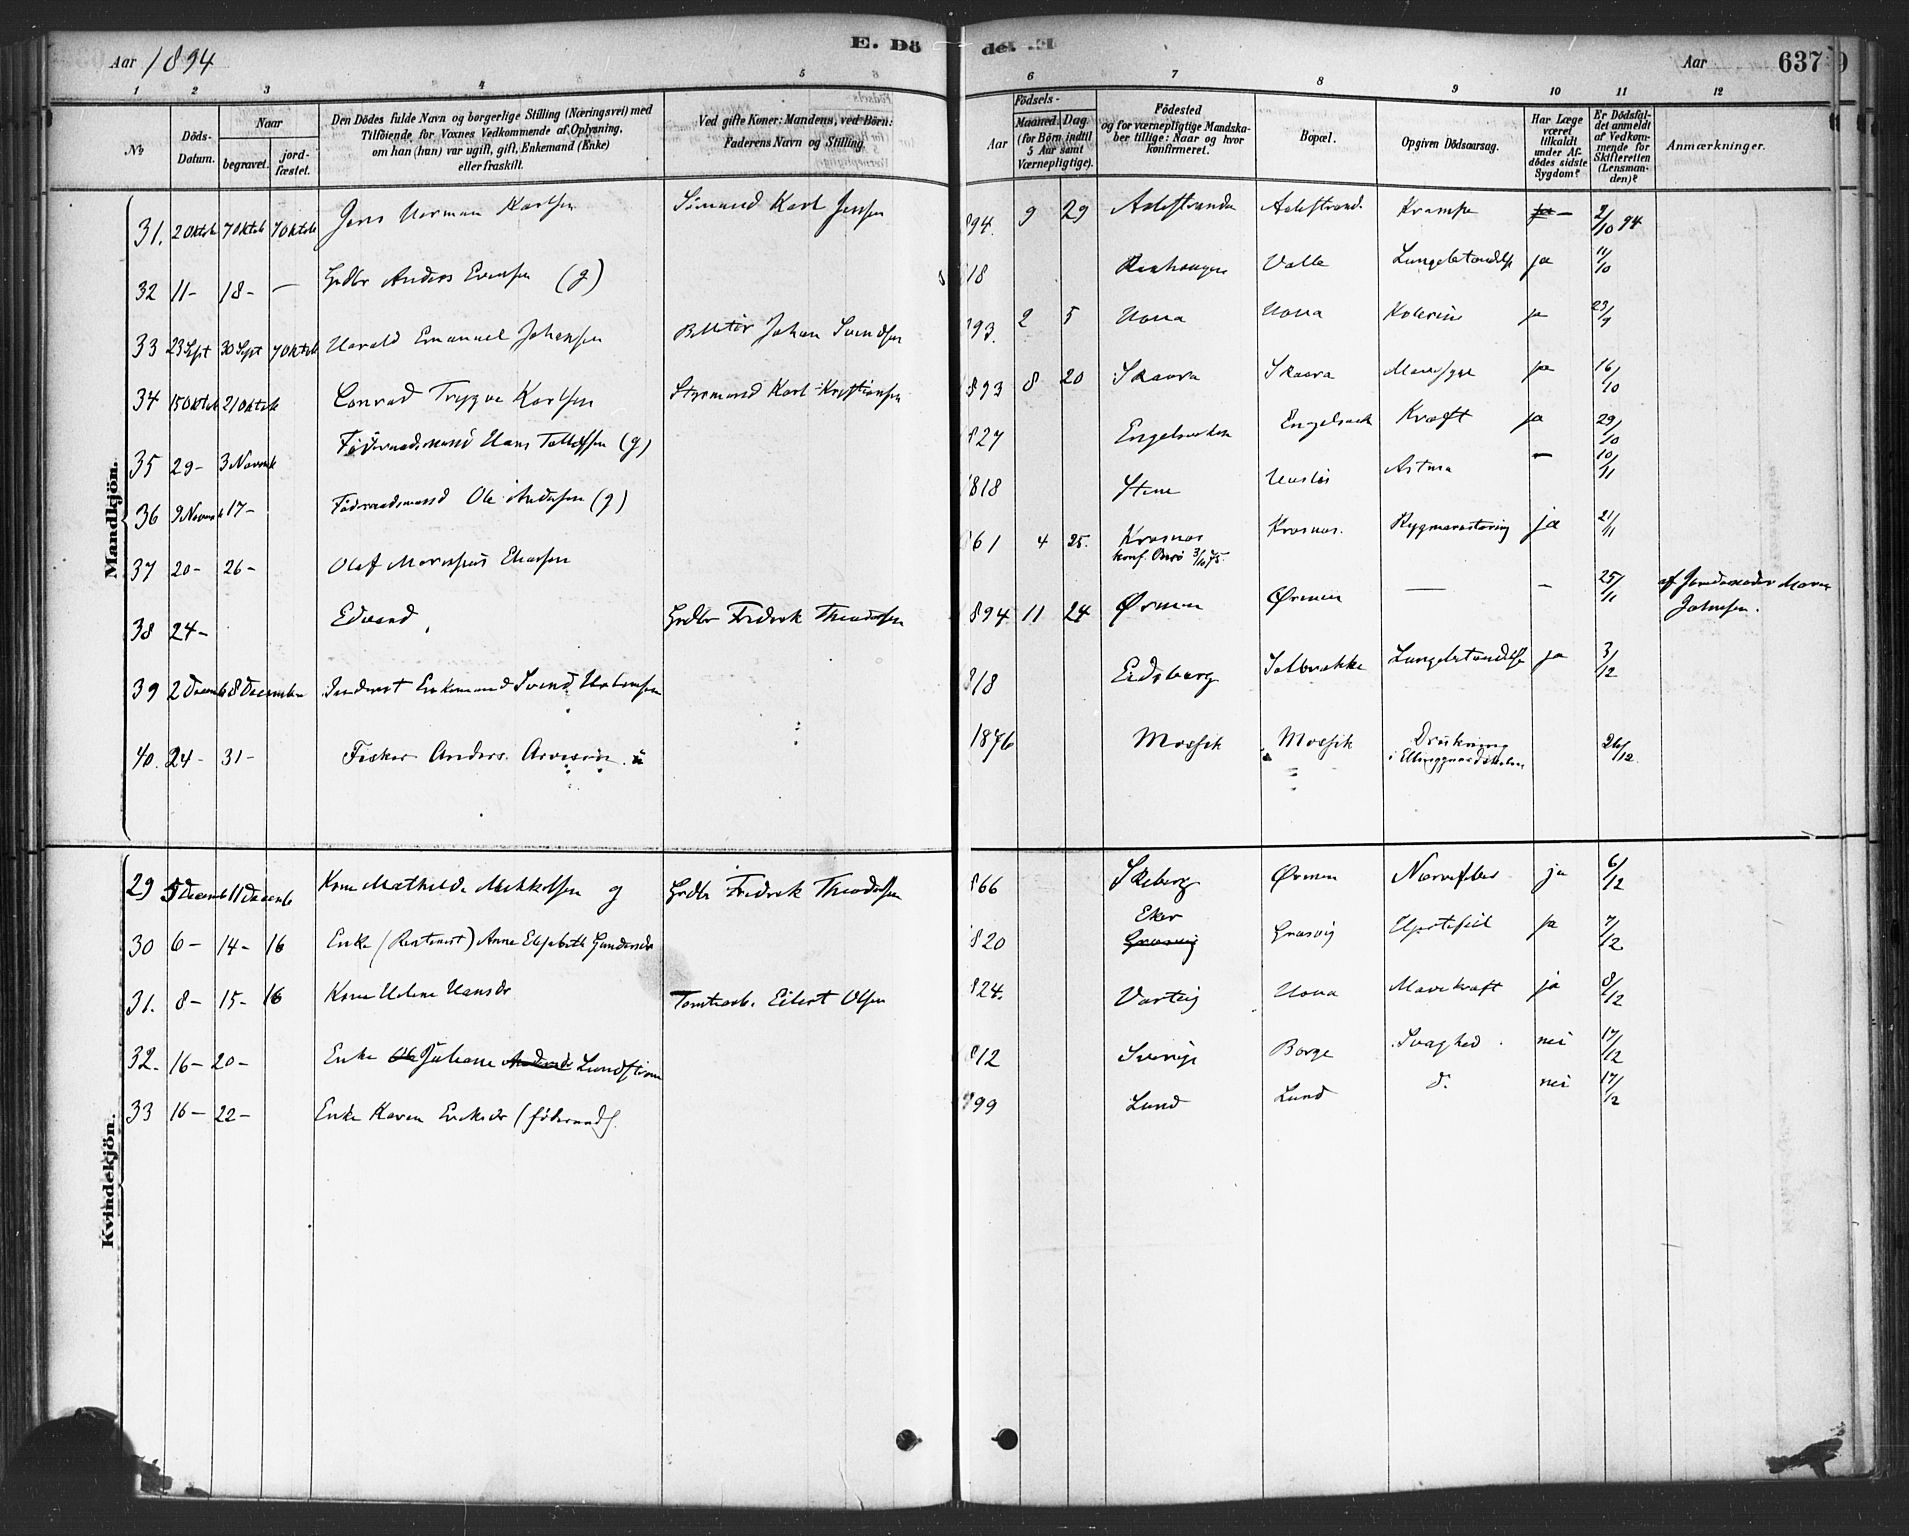 Aar 1894
E. Dö
de. E.
Aar
637
9
1 2 3 4 5 6 7 8 9 10 11 12
№
Döds-Datum.
Naar
begravet.
jordfæstet.
Den Dödes fulde Navn og borgerlige Stilling (Næringsvei) med
Tilföiende for Voxnes Vedkommende af Oplysning,
om han (hun) var ugift, gift, Enkemand (Enke)
eller fraskilt.
Ved gifte Koner: Mandens, ved Börn:
Faderens Navn og Stilling.
Födsels-
Aar
Maaned. Dag
(for Börn indtil
5 Aar samt
Værnepligtige).
Födested
og for værnepligtige Mandskaber tillige: Naar og hvor
konfirmeret.
Bopæl.
Opgiven Dödsaarsag.
Har Læge
været
tilkaldt
under Afdödes sidste
Sygdom?
Er Dödsfaldet anmeldt
af Vedkommende for
Skifteretten
(Lensmanden)?
Anmærkninger.
Mandkjön.
31. 2 Oktob 7 Oktob 7 Oktob Jens Herman Karlsen Sömand Karl Jensen 894. 9 29 Aalestranda Aalestrand. Krampe ja — 2/10 94
32 11- 18- — Grdbr Anders Evensen (g) 818 Valle Lungebetændelse ja 11/10
33 23 Sept 30 Sept 7 Oktob Harald Emanuel Johansen Johan Svendsen 93. 2 5 Hova Hova Kolerine ja 23/9
34 15 Oktob 21 Oktob Conrad Trygve Karlsen Styrmand Karl Kristiansen 893 8 20 Skaara Skaara Mavesyge ja 16/10
35 29- 3 Novemb Föderaadsmand Hans Tollefsen (g) 827 Engelsviken Engelsvik Kræft ja 29/10
36 9 Novemb 17- Föderaadsmand Ole Andersen (g) 818 Stene Huslös Astma — 10/11
37 20- 26- Olaf Eliasen 861 4 25. Krosnes Krosnes. Rygmarvstæring ja 21/11
konf. Onsö 3/10 75.
38 24- Edvard Grdbr Fredrik Theodorsen 894 11 24 Örmen Örmen — — 25/11 af Jordemoder Maren
Johnsen.
39 2 Decemb 8 December Inderst Enkemand Svend 818 Eidsberg Solbrække Lungebetændelse ja 3/12
40. 24- 31- Fisker Anders u 1876 Mossik Mossik Drukning 26/12
Kvindekjön.
29 5 Decemb 11 Decemb Kone Mathilde Mikkelsen g Grdbr Fredrik Theodorsen 866 Skeberg Örmen Nervefeber ja 6/12
30 6- 14- 16 Enke (Rentenist) Anne Elisabeth Gundersdr 820 Eker Gresvig Gresvig Hjertefeil ja 7/12
31. 8- 15- 16 Kone Helene Hansdr Tomtearb. Eilert Olsen 824. Varteig Hova Mavekræft ja 8/12
32. 16- 20- Enke Juliane Lundström 812 Sverige Borge Svaghed. nei 17/12
33 16- 22- Enke Karen Eriksdr (föderaad) 799 Lund Lund d. nei 17/12